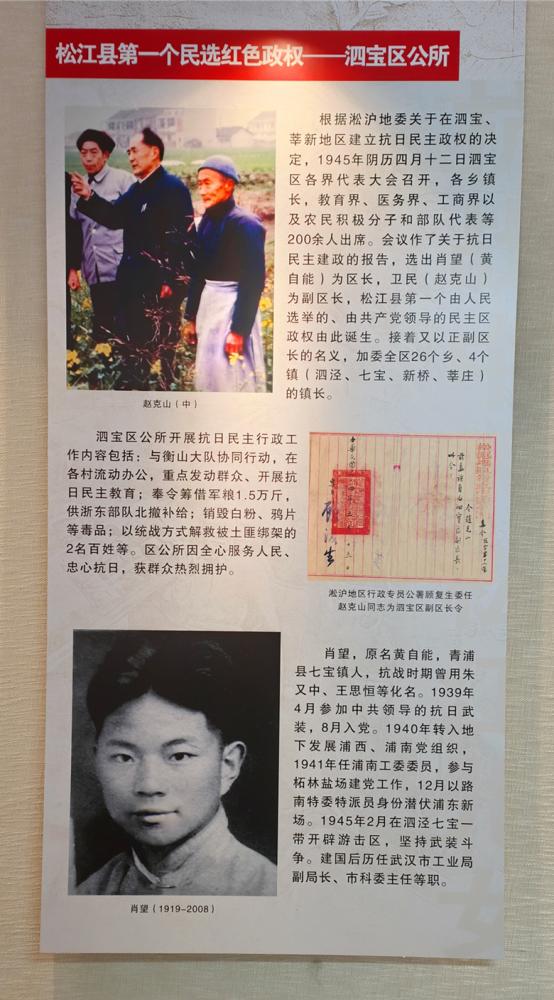 松江县第一个民选红色政权——泗宝区公所
根据淞沪地委关于在泗宝、
莘新地区建立抗日民主政权的决
定，1945年阴历四月十二日泗宝
区各界代表大会召开，各乡镇
长，教育界、医务界、工商界以
及农民积极分子和部队代表等
200余人出席。会议作了关于抗日
民主建政的报告，选出肖望（黄
自能）为区长，卫民（赵克山）
为副区长，松江县第一个由人民
选举的、由共产党领导的民主区
政权由此诞生。接着又以正副区
长的名义，加委全区26个乡、4个
镇（泗泾、七宝、新桥、莘庄）
的镇长。
赵克山（中）
泗宝区公所开展抗日民主行政工
作内容包括：与衡山大队协同行动，在
各村流动办公，重点发动群众、开展抗
日民主教育；奉令筹借军粮1.5万斤，
供浙东部队北撤补给；销毁白粉、鸦片
等毒品；以统战方式解救被土匪绑架的
2名百姓等。区公所因全心服务人民、
忠心抗日，获群众热烈拥护。
淞沪地区行政专员公署顾复生委任
赵克山同志为泗宝区副区长令
肖望，原名黄自能，青浦
县七宝镇人，抗战时期曾用朱
又中、王思恒等化名。1939年
4月参加中共领导的抗日武
装，8月入党。1940年转入地
下发展浦西、浦南党组织，
1941年任浦南工委委员，参与
柘林盐场建党工作，12月以路
南特委特派员身份潜伏浦东新
场。1945年2月在泗泾七宝一
带开辟游击区，坚持武装斗
争。建国后历任武汉市工业局
副局长、市科委主任等职。
肖望（1919-2008）